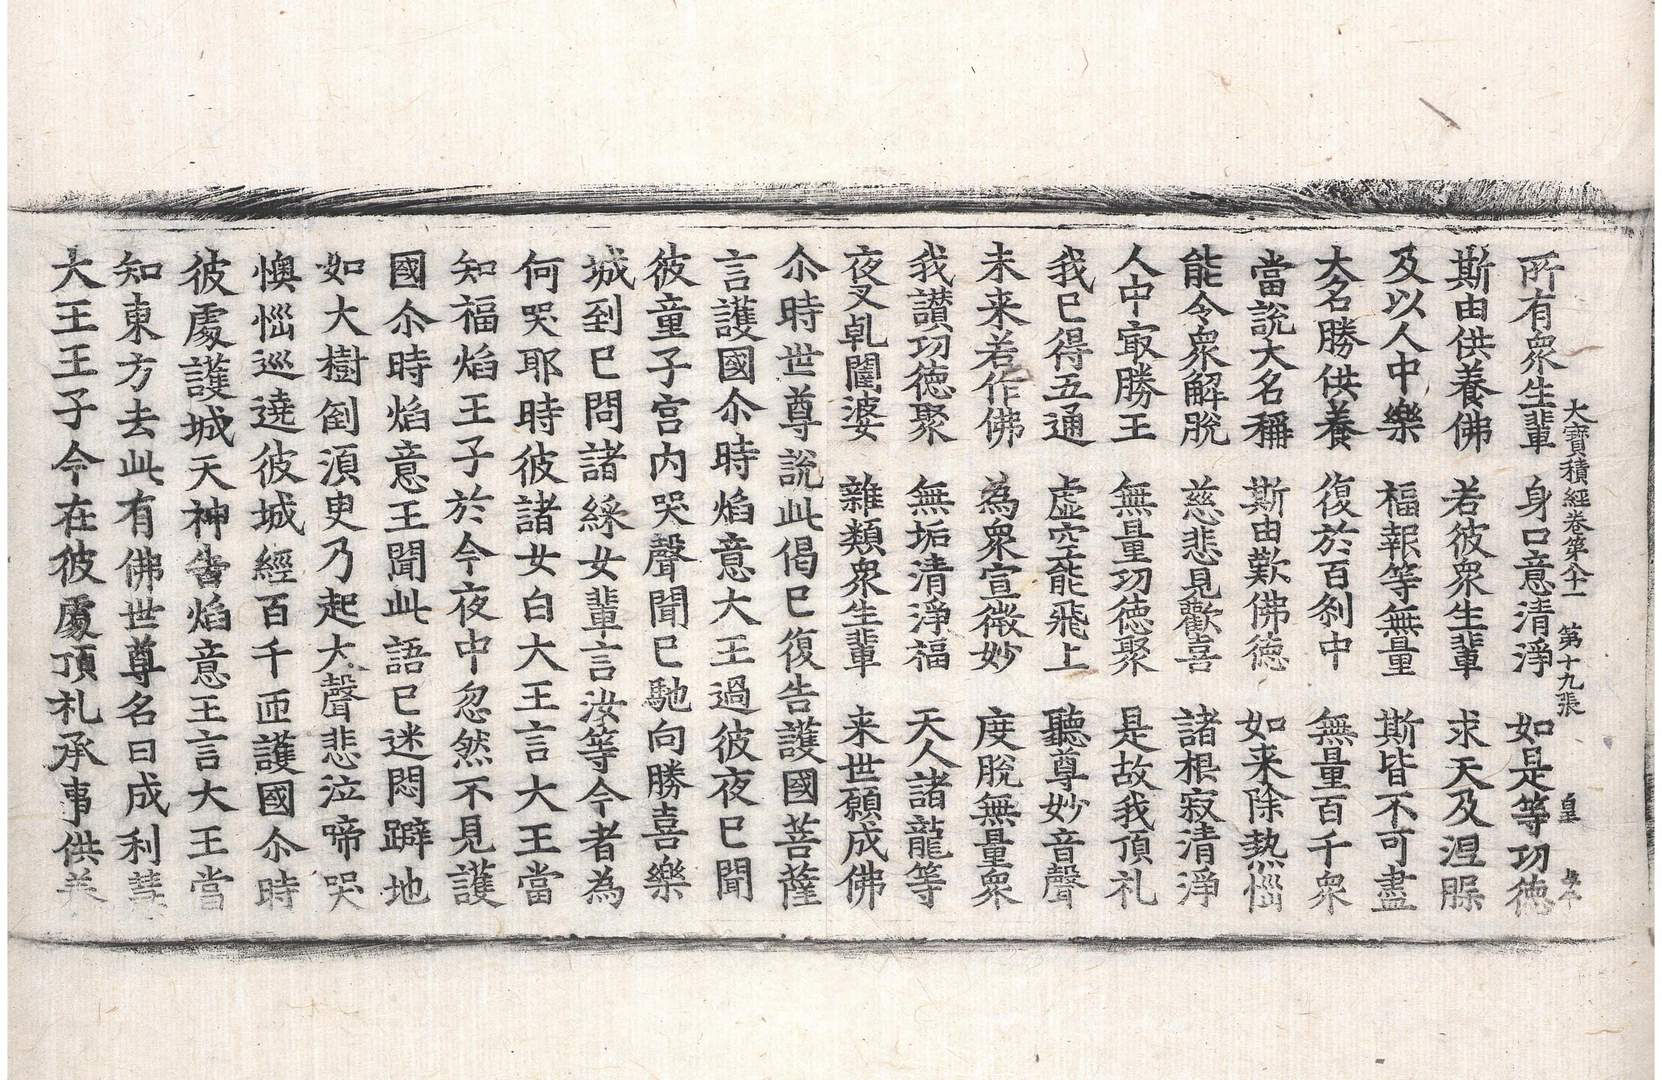 大寶積經卷第八十一　第十九張　皇
所有衆生輩　身口意清淨　如是等功徳
斯由供養佛　若彼衆生輩　求天及涅槃
及以人中樂　福報等無量　斯皆不可盡
大名勝供養　復於百刹中　無量百千衆
當説大名稱　斯由歎佛徳　如来除熱惱
能令衆解脱　慈悲見歡喜　諸根寂清淨
人中冣勝王　無量功徳聚　是故我頂礼
我已得五通　虚空能飛上　聽尊妙音聲
未来若作佛　為衆宣微妙　度脱無量衆
我讃功徳聚　無垢清淨福　天人諸龍等
夜叉乹闥婆　雜類衆生輩　来世願成佛
尒時世尊説此偈已復告護國菩薩
言護國尒時焰意大王過彼夜已聞
彼童子宫内哭聲聞已馳向勝喜樂
城到已問諸綵女輩言汝等今者為
何哭耶時彼諸女白大王言大王當
知福焰王子於今夜中忽然不見護
國尒時焰意王聞此語已迷悶躃地
如大樹倒須臾乃起大聲悲泣啼哭
懊惱巡遶彼城經百千迊護國尒時
彼處護城天神告焰意王言大王當
知東方去此有佛世尊名曰成利慧
大王王子今在彼處頂礼承事供養